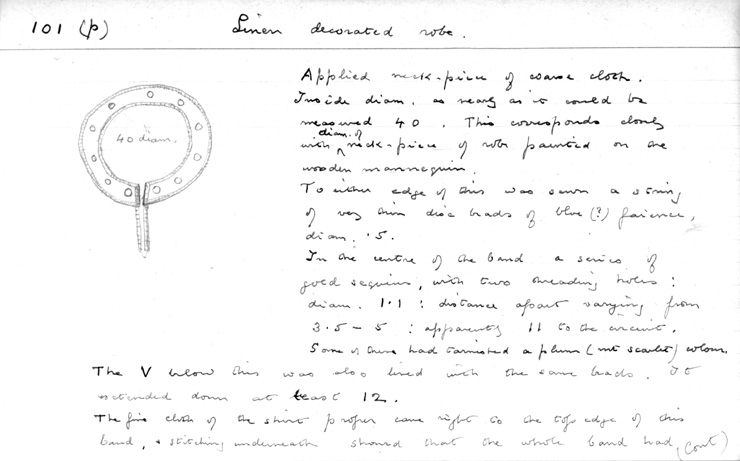 101 (p) Linen decorated robe.
Applied neck-piece of coarse cloth.
Inside diam. as nearly as it could be
measured 40. This corresponds closely
with diam. of neck-piece of robe painted on the
wooden mannequin.
To either edge of this was sewn a string
of very thin disc beads of blue (?) faience,
diam. .5.
In the centre of the band a series of
gold sequins, with two threading holes :
diam. 1.1 : distance apart varying from
3.5 - 5 : apparently 11 to the circuit.
Some of these had tarnished a plum (not scarlet) colour.
40 diam.
The V below this was also lined with the same beads. It
extended down at least 12.
The fine cloth of the shirt proper came right to the top edge of this
band, & stitching underneath showed that the whole band had, (cont)